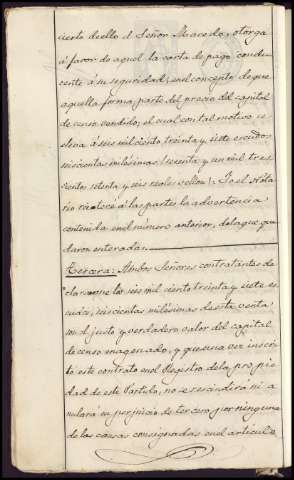 cierto de ello el Señor Macedo, otorga
á favor de aquel la carta de pago condu-
cente á su seguridad, en el concepto de que
aquella forma parte del precio del capital
de censo vendido, el cual con tal motivo se
eleva á seis mil ciento treinta y siete escudos
seiscientas milésimas (sesenta y un mil tres
cientos setenta y seis reales vellon). Yo el Nota
rio reiteré á las partes la advertencia
contenida en el número anterior, de la que que
daron enterados.
Tercera: Ambos Señores contratantes de
claran que los seis mil ciento treinta y siete es
cudos, seiscientas milésimas de esta venta
son el justo y verdadero valor del capital
de censo enagenado, y que una vez inscri
to este contrato en el Registro de la propie
dad de este Partido, no se rescindirá ni a
nulará en perjuicio de tercero por ninguna
de las causas consignadas en el artículo